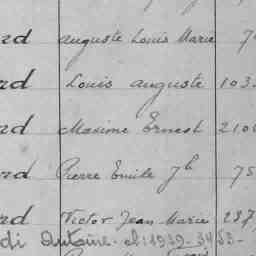 rd Auguste Louis Marie 7
rd Louis Auguste 103
rd Maxime Ernest 210
rd Pierre Emile Jh 75
rd Victor Jean Marie 237
di Antoine. cl: 1939-3453-